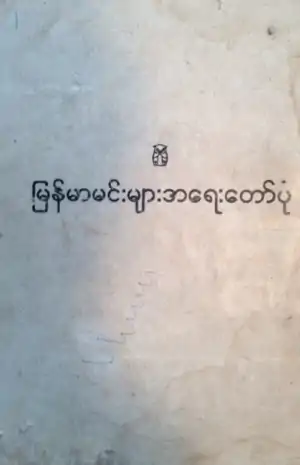 မြန်မာမင်းများအရေးတော်ပုံ